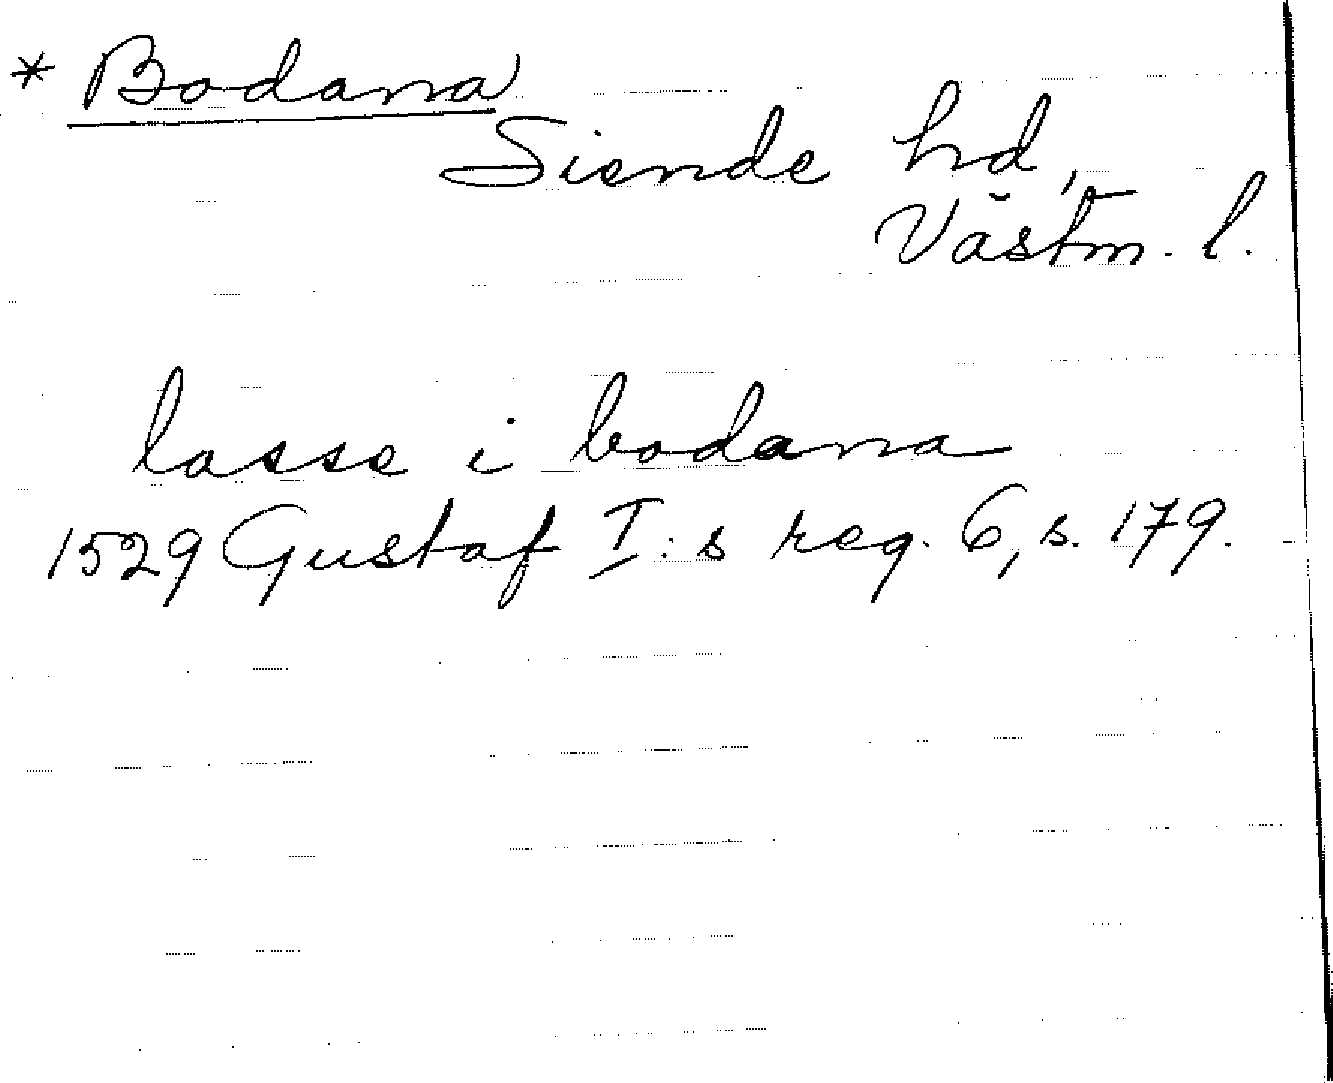 * Bodana
Siende hd,
Västm. l.
lasse i bodana
1529 Gustaf I:s reg. 6, s. 179.